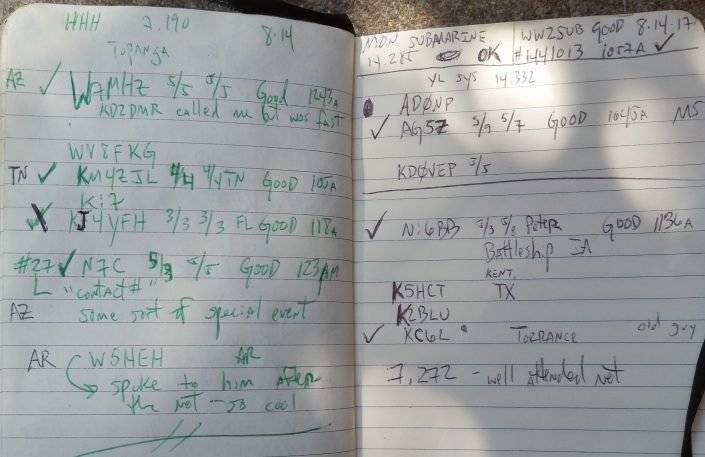 HHH 7.190 8.14
TOPANGA
AZ ✓ W7MHZ 5/5 5/5 Good 1243A
KD2DMR called me but was fast
WV8FKG
TN ✓ KM4ZJL 4/4 4/4 TN GOOD 105A
Ki7
KJ4YFH 3/3 3/3 FL GOOD 118A
#27 ✓ N7C 5/5 GOOD 123PM
L "contact #"
AZ some sort of special event
AR W5HEH AR
spoke to him after
the net - so cool
MON SUBMARINE WW2SUB GOOD 8.14.17
14.285 OK #1441013 1057A ✓
YL SYS 14.332
ADØNP
✓ AG5Z 5/9 5/7 GOOD 1045A MS
KDØVEP 5/5
✓ Ni6BB 5/8 Peter GOOD 1136A
Battleship IA
KENT,
K5HCT TX
K2BLU
✓ KC6L TORRANCE old guy
7,272 - well attended net